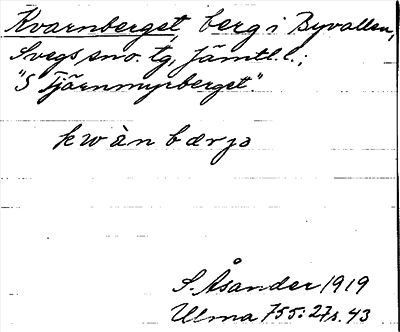 Kvarnberget, berg i Byvallen,
Svegs sno. tg, Jämtl. l.;
"S Tjärnmyrberget"
kwàn bærjə
S. Åsander 1919
Ulma 755:27 s. 43